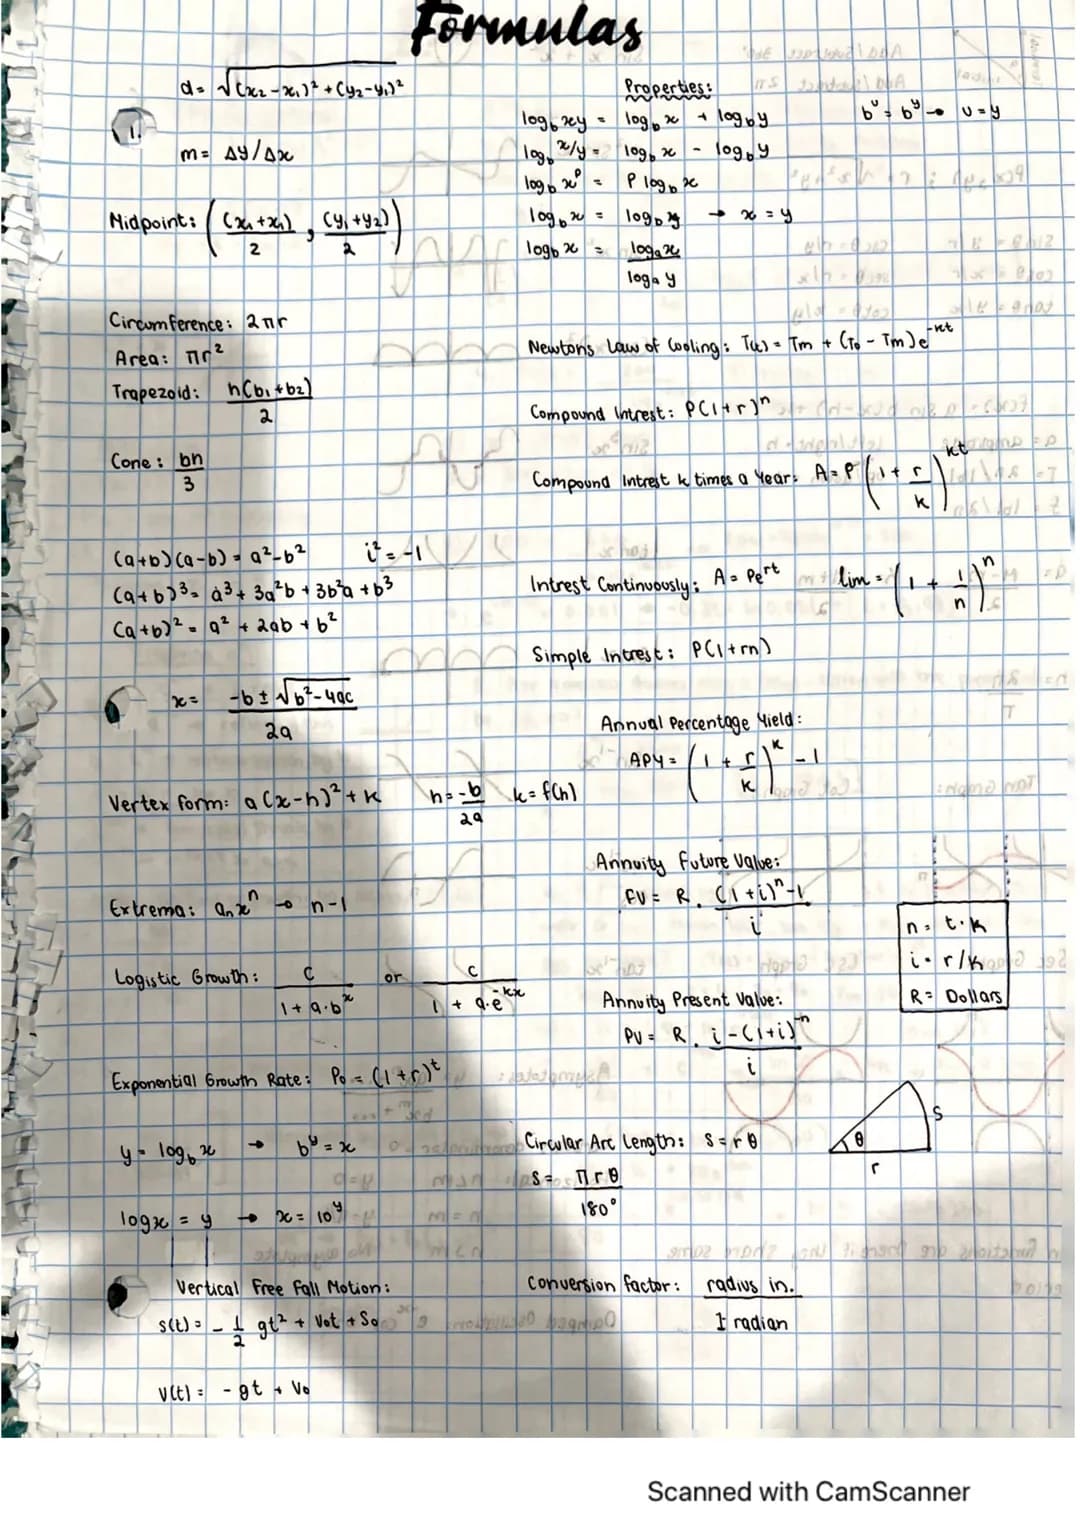 Formulas
d= √(x₂-x₁)² + (y₂-y₁)²
1.
m= Δy/Δx
Midpoint: ( (x₁+x₁)/2 , (y₁+y₂)/2 )
Circumference: 2πr
Area: πr²
Trapezoid: h(b₁+b₂)/2
Cone: bh/3
(a+b)(a-b) = a²-b² i² = -1
(a+b)³= a³+ 3a²b + 3b²a + b³
(a+b)² = a² + 2ab + b²
x= -b ± √b²-4ac / 2a
Vertex form: a(x-h)²+k h= -b/2a k=f(h)
Extrema: aₙxⁿ → n-1
Logistic Growth: c/(1+a·bˣ) or c/(1 + a·e^-kx)
Exponential Growth Rate: P₀ = (1+r)^t
y= log_b x → b^y = x
logx = y → x= 10^y
Vertical Free Fall Motion:
s(t) = - 1/2 gt² + V₀t + S₀
V(t) = -gt + V₀
Properties:
log_b xy = log_b x + log_b y b^u = b^y → u=y
log_b x/y = log_b x - log_b y
log_b x^p = P log_b x
log_b x = log_b y → x=y
log_b x = log_a x / log_a y
Newtons Law of Cooling: T(t) = Tm + (T₀ - Tm)e^-kt
Compound Intrest: P(1+r)ⁿ
Compound Intrest k times a Year: A=P(1 + r/k)^kt
Intrest Continuously: A= Pe^rt lim = (1 + 1/n)ⁿ
Simple Intrest: P(1+rn)
Annual Percentage Yield:
APY = (1 + r/k)^k - 1
Annuity Future Value:
FV = R. (1+i)ⁿ-1 / i
n= t·k
i= r/k
R= Dollars
Annuity Present Value:
PV = R. i-(1+i)^-n / i
Circular Arc Length: S=rθ
S= πrθ/180°
θ
r
S
Conversion factor: radius in. / 1 radian
Scanned with CamScanner